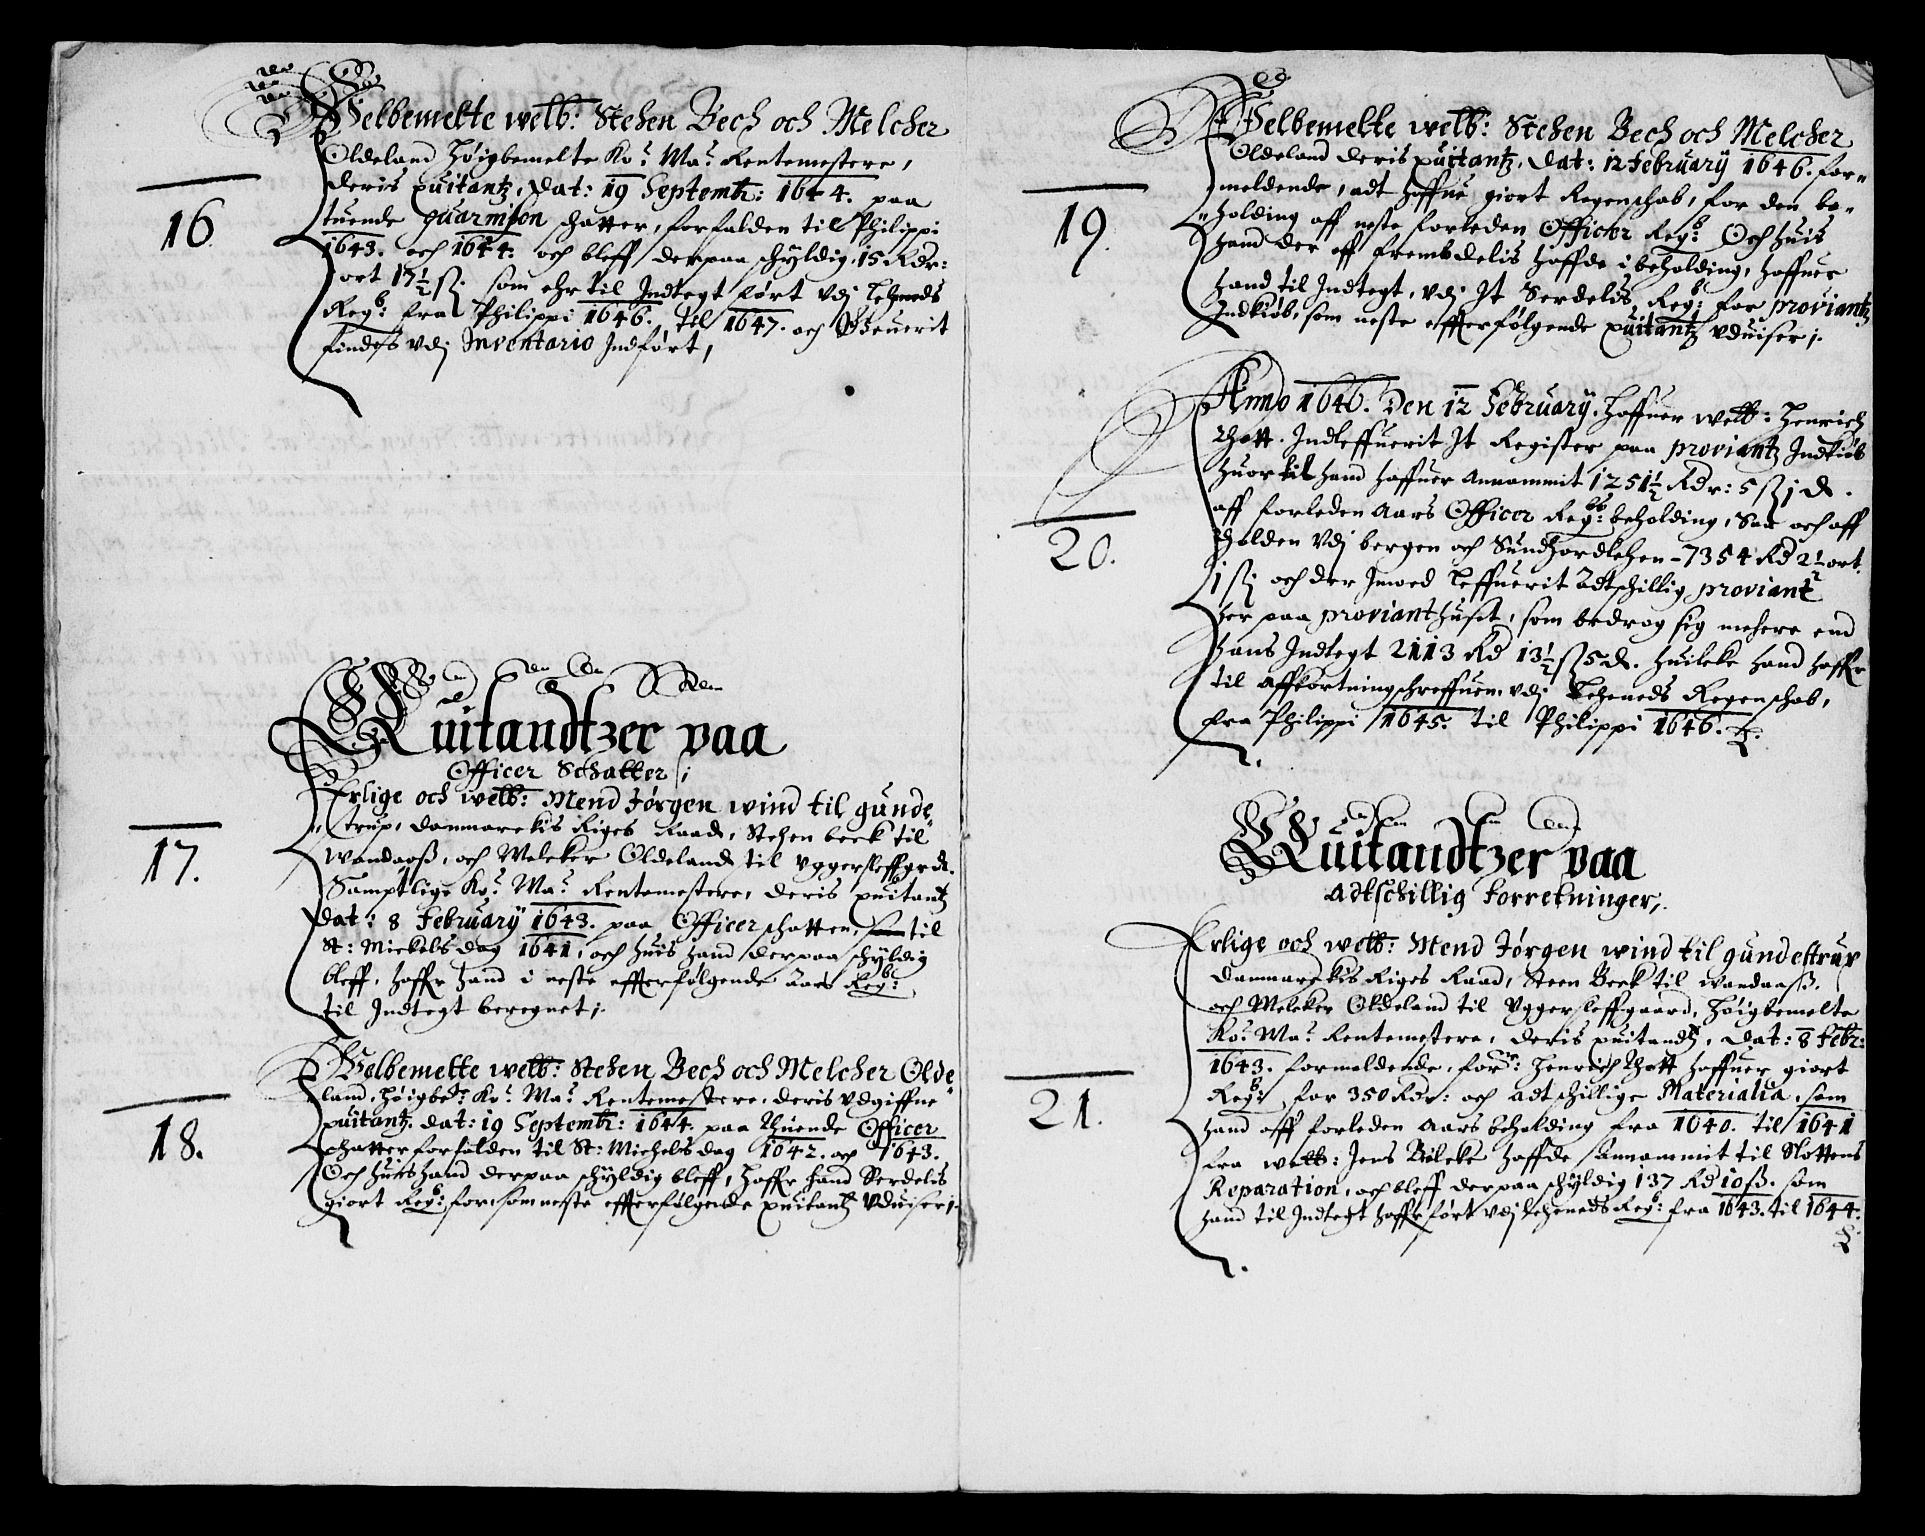 16.
Velbemelte welb: Stehen Bech och Melcher
Oldeland Høigbemelte Ko: Ma: Rentemestere,
deris quitantz, dat: 19 Septemb: 1644. paa
tuende guarnison schatter, forfalden til Philippi
1643. och 1644. och bleff derpaa schyldig 15 Rdr:
ort 17½ ß som ehr til Indtegt ført vdj Lehneds
Reg: fra Philippi 1646. til 1647. och
findes vdj Inventario Indført,
Quitandtzer paa
Officer Schatter
17.
Erlige och welb: Mend Jørgen wind til gunde
trup, danmarckis Riges Raad, Stehen beck til
wandaaß, och Melcker Oldeland til Uggersleffgrd.
Samptlige Ko: Ma: Rentemestere, deris quitantz
dat: 8 February 1643. paa Officer schatten, til
St: Mickels dag 1641, och huis hand derpaa schyldig
bleff, haffr hand i neste effterfølgende Aars Reg:
til Indtegt beregnet,
18.
Velbemelte welb: Stehen Bech och Melcher Olde
land, Høigbete Ko: Ma: Rentemestere, deris vdgiffne
quitantz, dat: 19 Septemb: 1644. paa thuende Officer
schatter forfalden til St: Michels dag 1642. och 1643.
Och huis hand derpaa schyldig bleff, haffr hand Serdelis
giort Reg: for, som neste effterfølgende quitantz vduiser,
19.
Velbemelte welb: Stehen Bech och Melcher
Oldeland deris quitantz, dat: 12 February 1646. for-
meldende, adt haffue giort Regenschab, for den be-
holding aff neste forleden Officer Reg: Och huis
hand der aff frembdelis haffde i beholding, haffuer
hand til Indtegt, vdj It Serdelis Reg: for proviantz
Indkiøb, som neste effterfølgende quitantz vduiser,
20.
Anno 1646. Den 12 February, haffuer welb: Henrich
Thott. Indleffuerit It Register paa proviantz Indkiøb
huor til hand haffuer Annammit 1251½ Rdr: 5 ß j d.
aff forleden Aars Officer Reg: beholding, Saa och aff
Tholden vdj bergen och Sundhordlehen - 7354 Rd 2½ ort.
j ß och der Imod leffuerit Adtschillig proviant
her paa proviant huset, som bedrog sig mehere end
hans Indtegt 2113 Rd 13½ ß 5 d. huilcke hand haffr
til Affkortning schreffuen, vdj Lehneds Regenschab,
fra Philippi 1645. til Philippi 1646.
Quitandtzer paa
Adtschillig Forretninger,
21.
Erlige och welb: Mend Jørgen wind til gundestrup
Danmarckis Riges Raad, Steen Beck til wandaaß,
och Melcker Oldeland til Uggersleffgaard, Høigbemelte
Ko: Ma: Rentemestere, deris quitandtz, dat: 8 Febr:
1643. formeldende, for: Henrich Thott haffuer giort
Reg: for 350 Rdr: och Adtschillige Materialia, som
hand aff forleden Aars beholding fra 1640. til 1641
fra welb: Jens Bilcke haffde annammit til Slottens
Reparation, och bleff derpaa schyldig 137 Rd 10 ß. som
hand til Indtegt haffr ført vdj Lehneds Reg: fra 1643. til 1644.